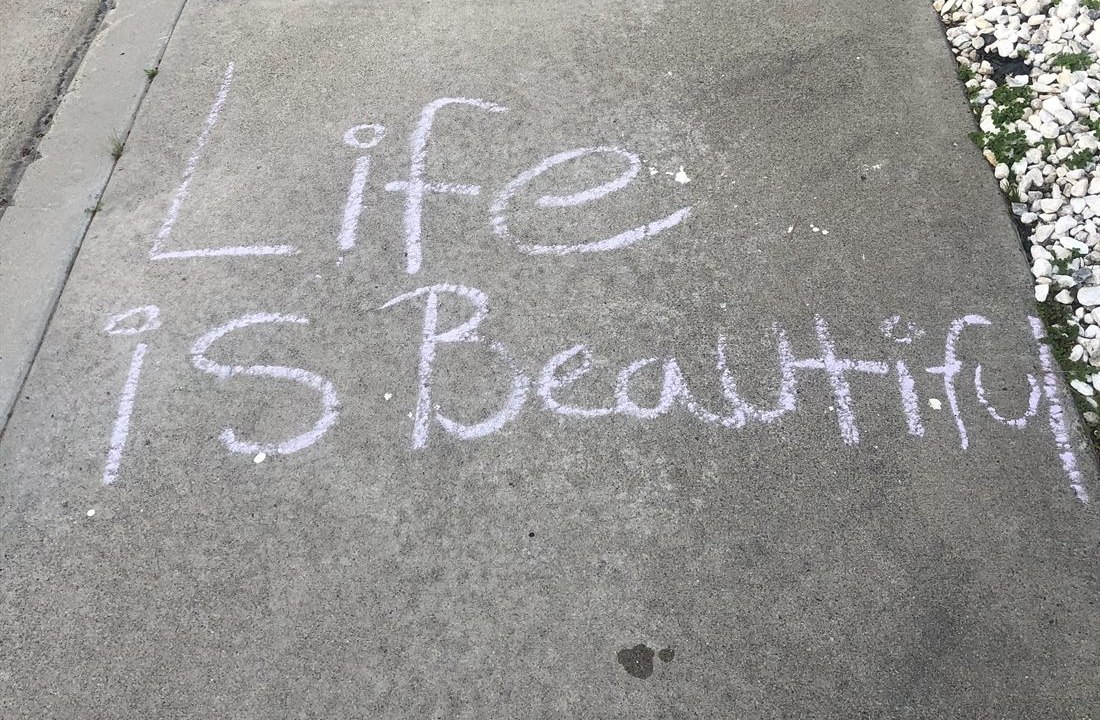 Life
is Beautiful